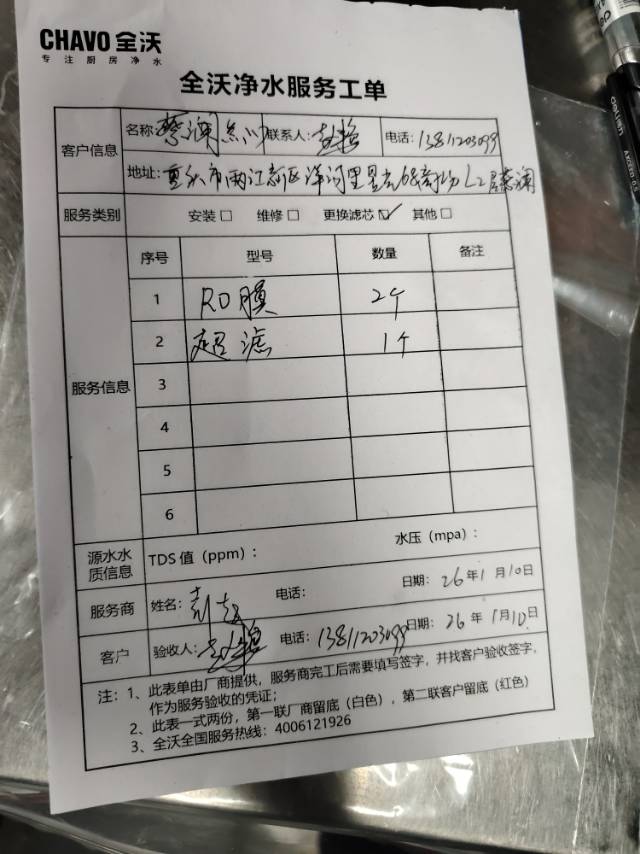 CHAVO 全沃
专注厨房净水
全沃净水服务工单
客户信息
名称: 蔡澜 联系人: 电话: 13811203099
地址: 重庆市两江新区洋河里星光68商场L2层蔡澜
服务类别 安装□ 维修□ 更换滤芯☑ 其他□
服务信息
序号 型号 数量 备注
1 RO膜 2个
2 超滤 1个
3
4
5
6
源水水质信息
TDS值（ppm）： 水压（mpa）：
服务商 姓名: 电话: 日期: 26年1月10日
客户 验收人: 电话: 13811203099 日期: 26年1月10日
注：1、此表单由厂商提供，服务商完工后需要填写签字，并找客户验收签字，
作为服务验收的凭证；
2、此表一式两份，第一联厂商留底（白色），第二联客户留底（红色）
3、全沃全国服务热线：4006121926
deli